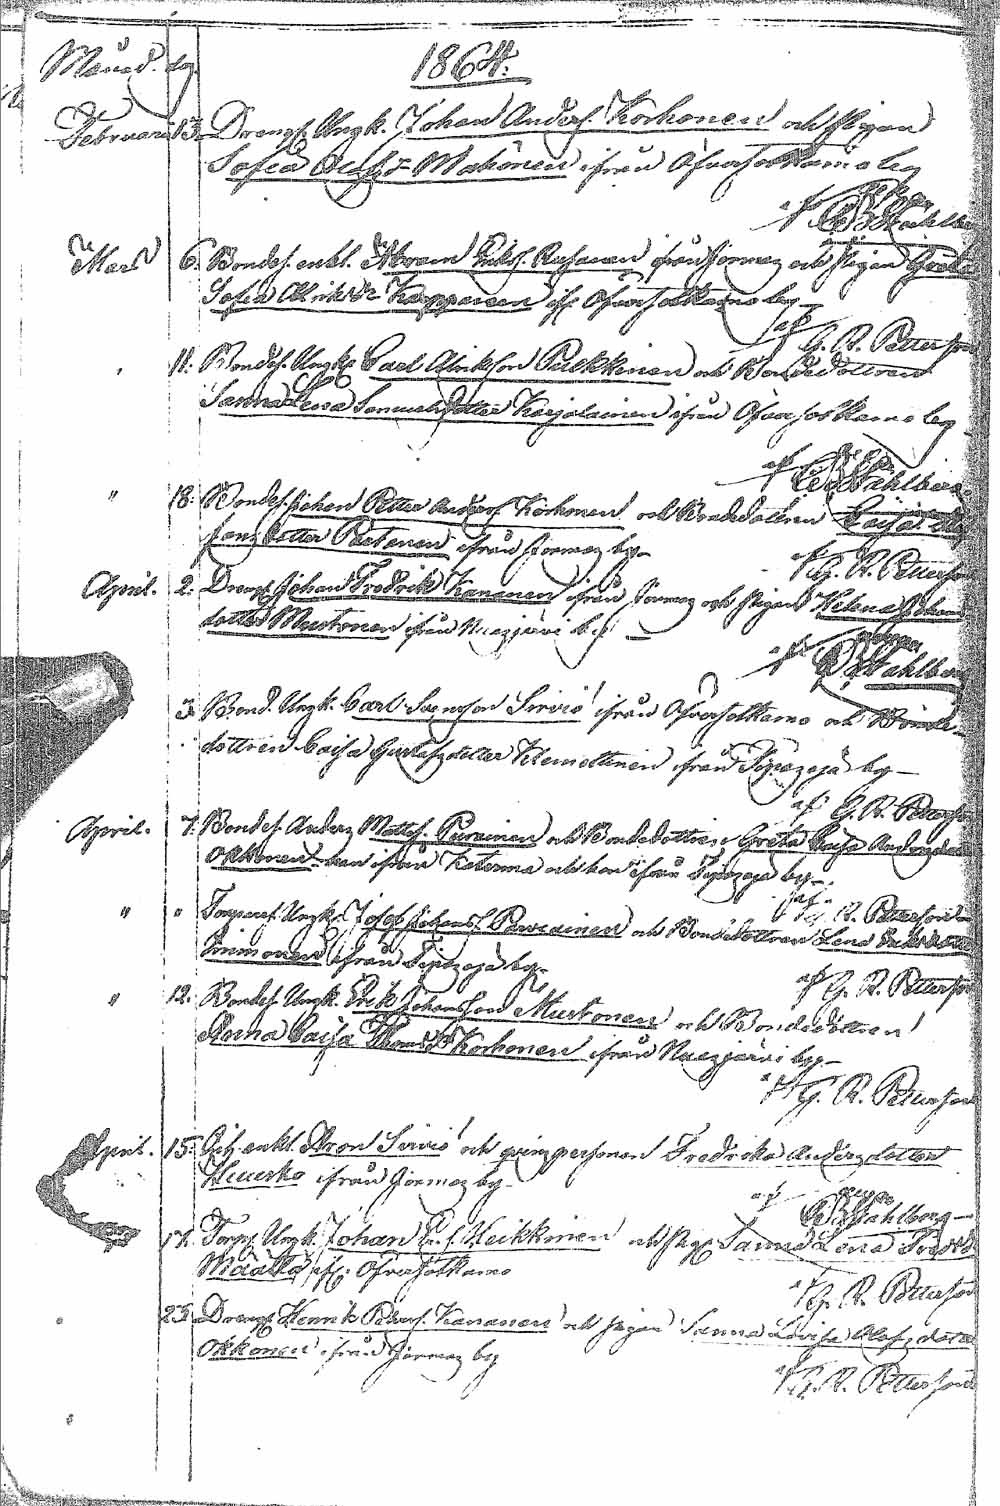 Månad. dag. 1864.
Februari 13. Drengs. Ungk. Johan Anders. Korhonen och Pigan
Sofia Mahonen ifrån Öfversotkamo by
af C. Ståhlberg
Mars 6. Bondes. enkl. Abram Eriks. Rusanen ifrån Jormas och Pigan Greta
Sofia Karppinen if. Öfversotkamo by
af G. R. Petterson
" 11. Bondes. Ungk. Carl Pulkkinen och Bondedottren
Sanna Lena Samuelsdotter Karjalainen ifrån Öfversotkamo by
af C. Ståhlberg
" 18. Bondes. Johan Petter Anders. Korhonen och Bondedottren Caisa
dotter Partanen ifrån Jormas by
af G. R. Petterson
April. 2. Drengs. Johan Fredrik Kananen ifrån Jormas och Pigan Helena Johans
dotter Mustonen ifrån Naapurijärvi by
af C. Ståhlberg
3. Bond. Ungk. Carl Svensson Sirviö ifrån Öfversotkamo och Bonde-
dottren Caisa Gustafsdotter Klemettinen ifrån Tipasoja by
af G. R. Petterson
April. 7. Bondes. Anders Matts. Purainen och Bondedottren Greta Caisa Andersdotter
Okkonen han ifrån Katerma och hon ifrån Tipasoja by
af G. R. Petterson
" " Torpares. Ungk. Josef Johans. Purainen och Bondedottren Lena
ifrån Tipasoja by
af G. R. Petterson
" 12. Bondes. Ungk. Erik Johansson Mustonen och Bondedottren
Anna Caisa Korhonen ifrån by
af G. R. Petterson
April. 15. enkl. Aron Sirviö och qvinspersonen Fredrika Andersdotter
Huusko ifrån Jormas by
af C. Ståhlberg
17. Torp. Ungk. Johan Heikkinen och Pig. Sanna Lena
Määttä if. Öfversotkamo
af G. R. Petterson
23. Drengs. Henrik Petters. Kananen och Pigan Sanna Lovisa Olofsdotter
Okkonen ifrån Jormas by
af G. R. Petterson